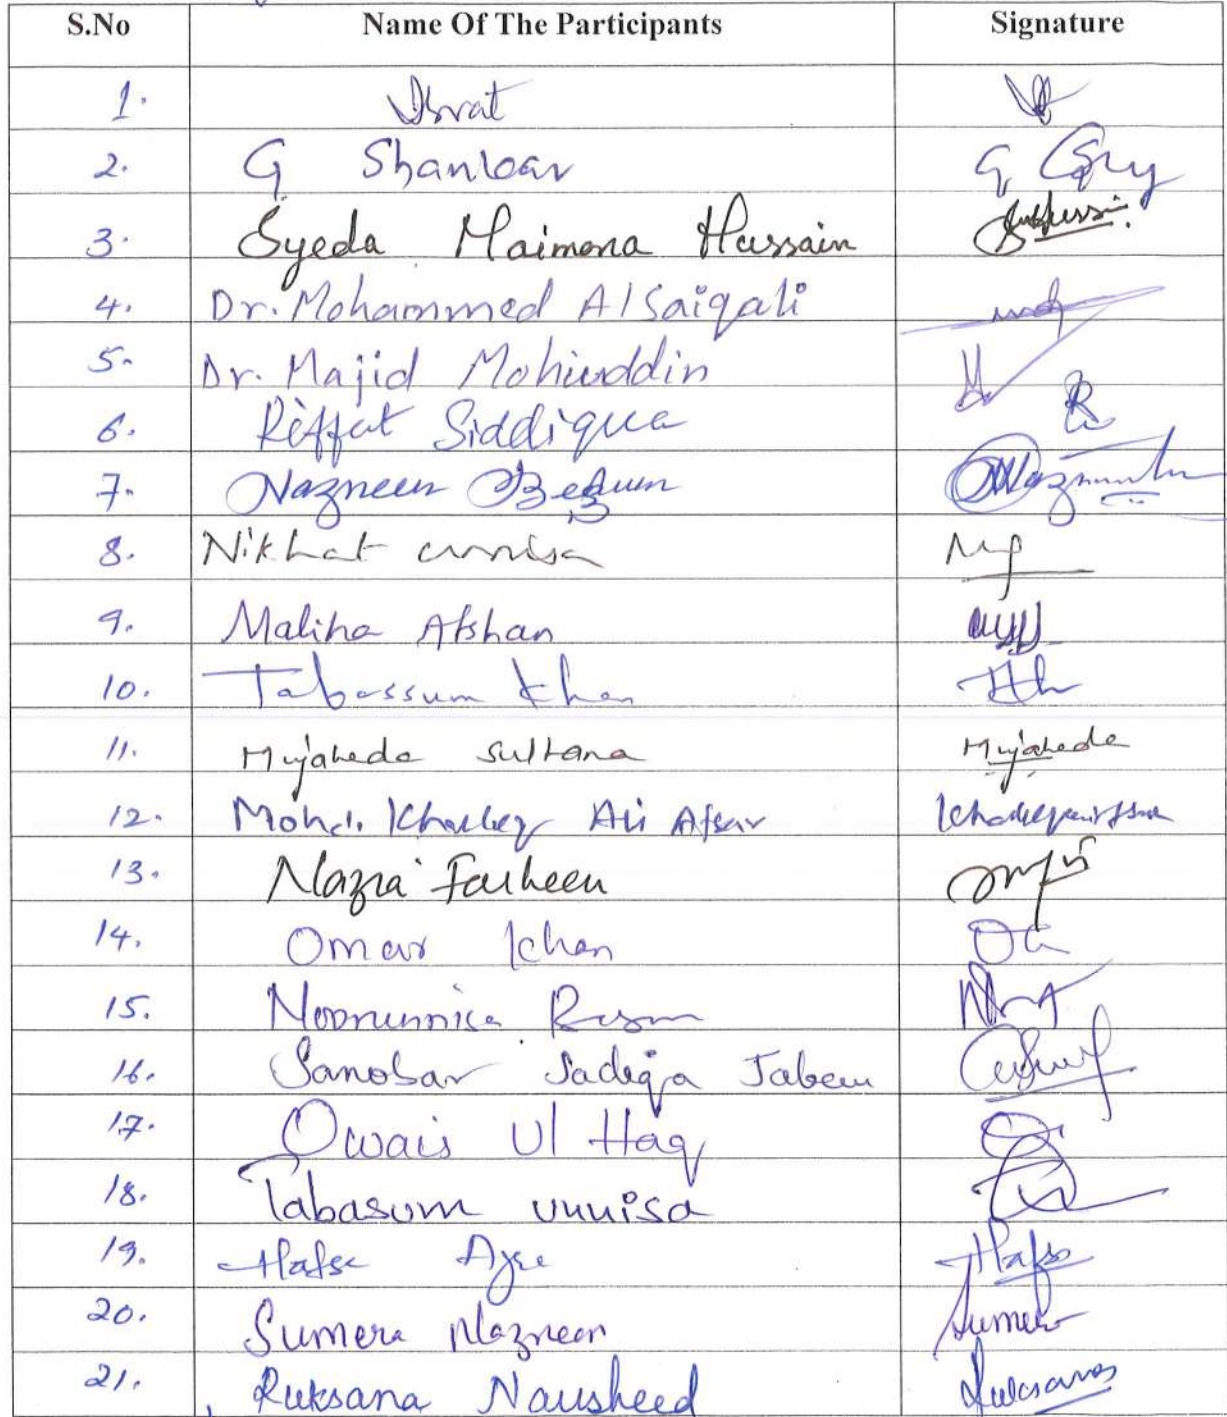 S.No Name Of The Participants Signature
1. Israt
2. G Shankar G
3. Syeda Maimona Hussain
4. Dr. Mohammed AlSaiqali
5. Dr. Majid Mohiuddin
6. Riffat Siddiqua
7. Nazneen Begum
8. Nikhat unnisa
9. Maliha Afshan
10. Tabassum Khan
11. Mujaheda Sultana Mujaheda
12. Mohd. Khaleeq Ali Afsar
13. Nazia Farheen
14. Omar Khan
15. Noorunnisa
16. Sanobar Sadiqa
17. Owais Ul Haq
18. Tabasum unnisa
19. Hafsa Hafsa
20. Sumera Nazneen Sumera
21. Ruksana Nausheed Ruksana